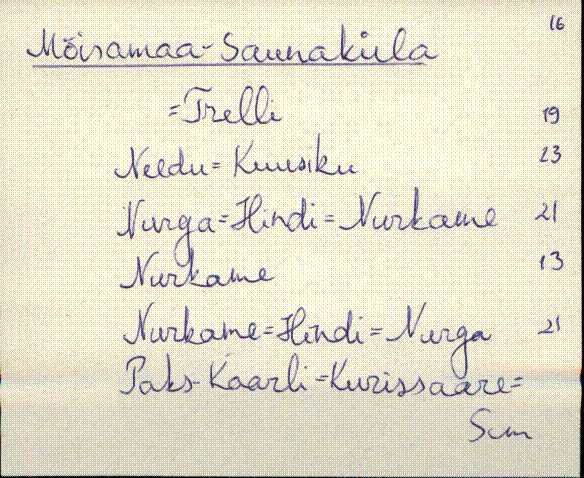 16
Mõisamaa-Saunaküla
=Trelli 19
Needu=Kuusiku 23
Nurga=Hindi=Nurkame 21
Nurkame 13
Nurkame=Hindi=Nurga 21
Paks-Kaarli=Kurissaare=